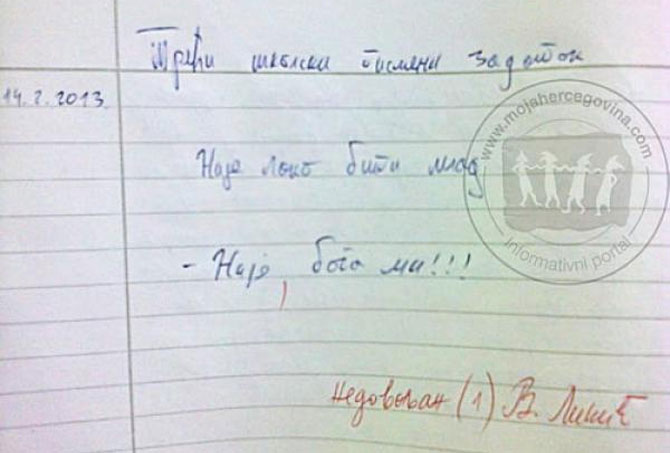 Трећи школски писмени задатак
14. 2. 2013
Није лако бити млад
- Није, бога ми!!!
Недовољан (1) В.
www.mojahercegovina.com
Informativni portal